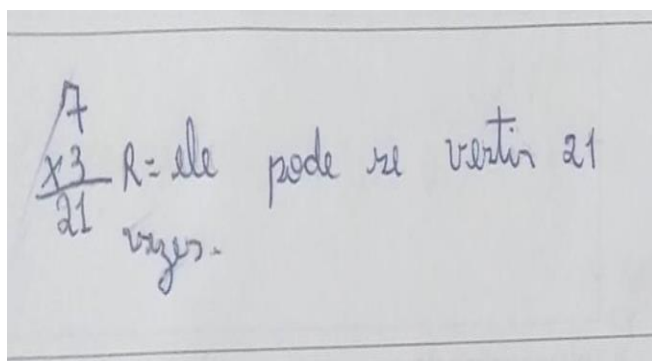 7
x3
21
R= ele pode se vertir 21
vezes.